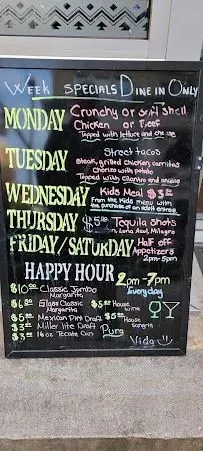 Week Specials Dine in Only
MONDAY Crunchy or soft shell
Chicken or Beef
Topped with lettuce and cheese
TUESDAY Street tacos
Steak, grilled chicken, carnitas
chorizo with potato
Topped with cilantro and onions
WEDNESDAY Kids Meal $3.00
From the Kids menu with
one purchase of an adult entree
THURSDAY $5.00 Tequila shots
Azul, Milagro
FRIDAY/SATURDAY Half off
Appetizers
2pm-5pm
HAPPY HOUR 2pm-7pm
Everyday
$10.00 Classic Jumbo
Margarita
$6.00 Glass Classic
Margarita
$5.00 House
Wine
$5.00 Mexican Pint Draft
$5.00 House
Sangria
$3.00 Miller lite Draft
$3.00 16oz Tecate Can
Pura
Vida